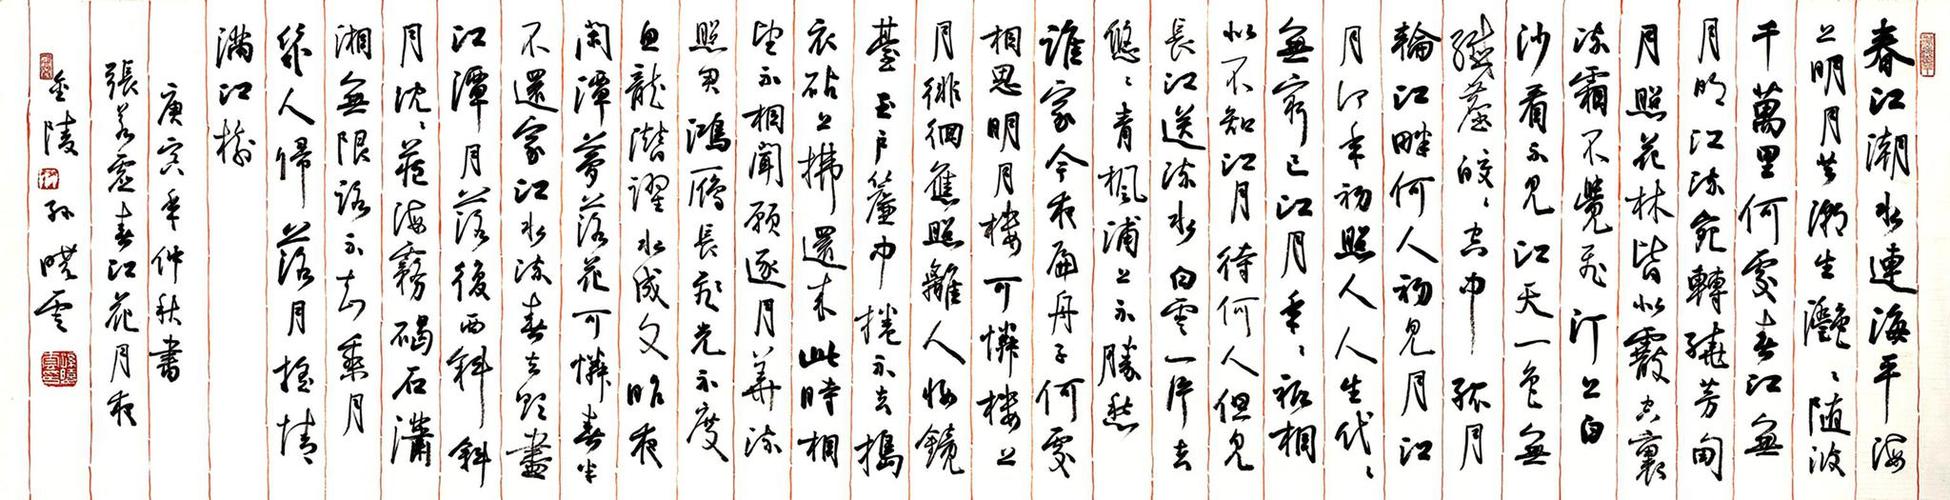 春江潮水連海平海
上明月共潮生灩〻随波
千萬里何處春江無
月明江流宛轉繞芳甸
月照花林皆似霰空裏
流霜不覺飛汀上白
沙看不見江天一色無
纖塵皎〻空中孤月
輪江畔何人初見月江
月何年初照人人生代〻
無窮已江月年〻祇相
似不知江月待何人但見
長江送流水白雲一片去
悠〻青楓浦上不勝愁
誰家今夜扁舟子何處
相思明月樓可憐樓上
月徘徊應照離人妝鏡
臺玉戶簾中捲不去搗
衣砧上拂還来此時相
望不相聞願逐月華流
照君鴻雁長飛光不度
魚龍潛躍水成文昨夜
閑潭夢落花可憐春半
不還家江水流春去欲盡
江潭月落復西斜斜
月沈〻藏海霧碣石瀟
湘無限路不知乘月
幾人歸落月搖情
滿江樹
庚寅年仲秋書
張若虛春江花月夜
金陵孫曉雲